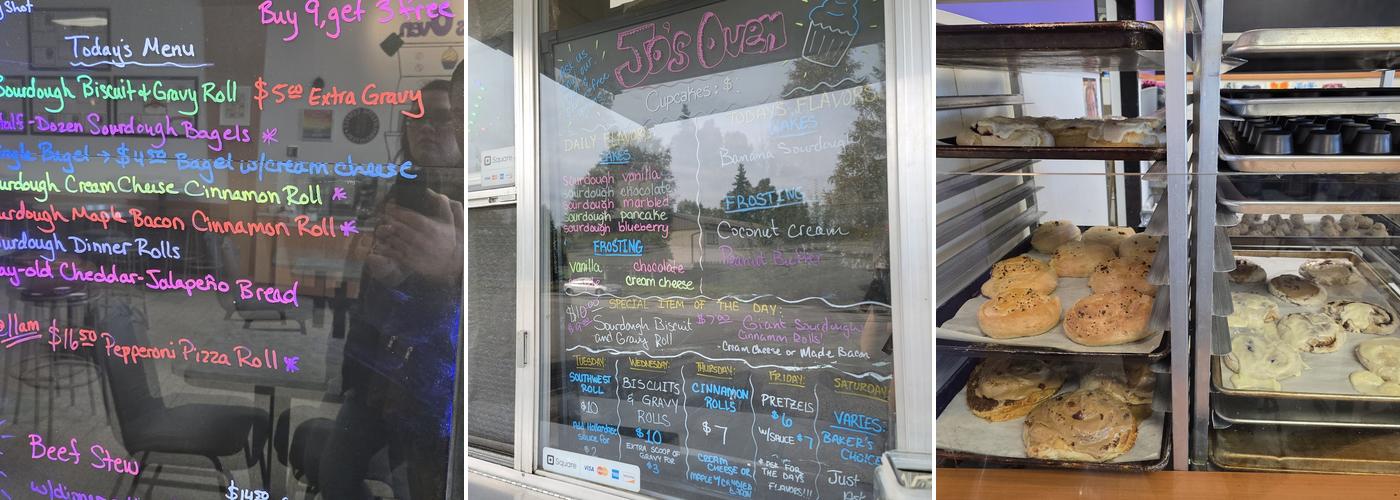 Shot
Buy 9, get 3 free
Today's Menu
Sourdough Biscuit & Gravy Roll $5.00 Extra Gravy
Half-Dozen Sourdough Bagels *
Single Bagel → $4.50 Bagel w/cream cheese
urdough Cream Cheese Cinnamon Roll *
urdough Maple Bacon Cinnamon Roll *
urdough Dinner Rolls
ay-old Cheddar-Jalapeño Bread
11am $16.50 Pepperoni Pizza Roll *
Beef Stew
$14.50
Jo's Oven
Cupcakes: $
DAILY FLAVORS
CAKES
sourdough vanilla
sourdough chocolate
sourdough marbled
sourdough pancake
sourdough blueberry
FROSTING
vanilla chocolate
cream cheese
TODAYS FLAVORS
CAKES
Banana Sourdough
FROSTING
Coconut Cream
Peanut Butter
SPECIAL ITEM OF THE DAY:
$10.00 Sourdough Biscuit
and Gravy Roll
$7.00 Giant Sourdough
Cinnamon Rolls
- Cream Cheese or Maple Bacon
TUESDAY:
SOUTHWEST
ROLL
$10
Add Hollandaise
sauce for
$2
WEDNESDAY:
BISCUITS
& GRAVY
ROLLS
$10
EXTRA SCOOP OF
GRAVY FOR
$3
THURSDAY:
CINNAMON
ROLLS
$7
CREAM
CHEESE OR
MAPLE & CANDIED
BACON
FRIDAY:
PRETZELS
$6
W/SAUCE $7
* ASK FOR
THE DAYS
FLAVORS!!!
SATURDAY:
VARIES:
BAKER'S
CHOICE
Just
Square VISA
Square